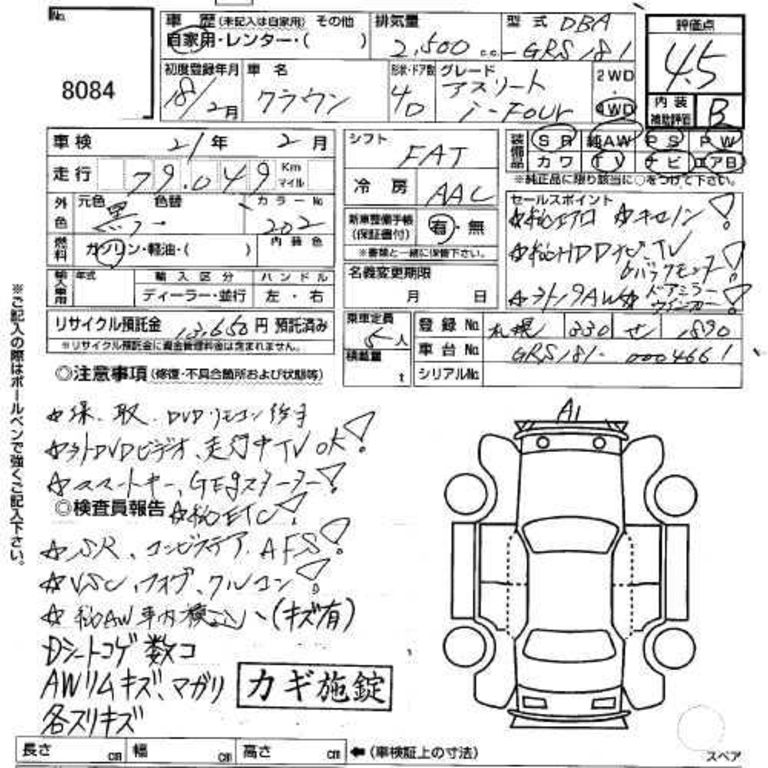 No.
8084
車歴 (未記入は自家用) その他
自家用・レンター・( )
排気量
2,500 cc
型式 DBA
GRS181
評価点
4.5
内装
補助評価 B
初度登録年月
18/2月
車名
クラウン
形状・ドア数
4D
グレード
アスリート
i-Four
2WD
4WD
車検 21年 2月
走行 79.049 Km
マイル
外色 元色 色替 カラーNo.
黒 202
燃料 ガソリン・軽油・( ) 内装色
輸入車用 年式 輸入区分 ハンドル
ディーラー・並行 左・右
リサイクル預託金 13,650円 預託済み
※リサイクル預託金に資金管理料金は含まれません。
シフト FAT
冷房 AAC
新車整備手帳
(保証書付) 有・無
※書類と一緒に保管下さい。
名義変更期限
月 日
乗車定員 5人
積載量 t
装備品 SR 純AW PS PW
カワ TV ナビ エアB
※純正品に限り該当に○をつけて下さい。
セールスポイント
☆純エアロ ☆キセノン!
☆純HDDナビTV
バックモニター!
☆ドアミラー
ウインカー!
登録No. 札幌 330 せ 1890
車台No. GRS181- 0004661
シリアルNo.
◎注意事項 (修復・不具合箇所および状態等)
☆保、取、DVDリモコン
☆外DVDビデオ、走行中TV OK!
☆スマートキー、
◎検査員報告 ☆純ETC!
☆SR、コンビステア、AFS!
☆VSC、フォグ、クルコン!
☆純AW 車内積込、(キズ有)
Dシートコゲ数コ
AWリムキズ、マガリ
各スリキズ
カギ施錠
A1
スペア
長さ cm 幅 cm 高さ cm ←(車検証上の寸法)
※ご記入の際はボールペンで強くご記入下さい。